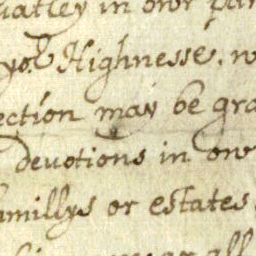 uatley in owr par
yor Highnesse, w
ection may be gra
devotions in ow
amillys or estates
all